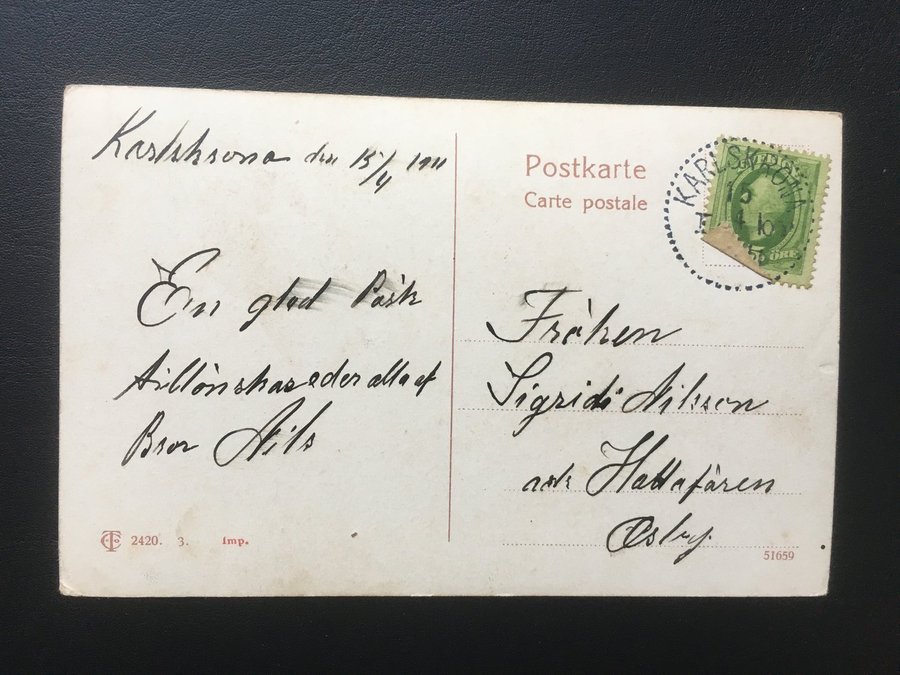 Karlskrona den 15/4 1911
En glad Påsk
tillönskas eder alla af
Bror Nils
2420. 3. Imp.
Postkarte
Carte postale
KARLSKRONA
15
ÖRE
Fröken
Sigrid Nilsson
adr
Osby
51659